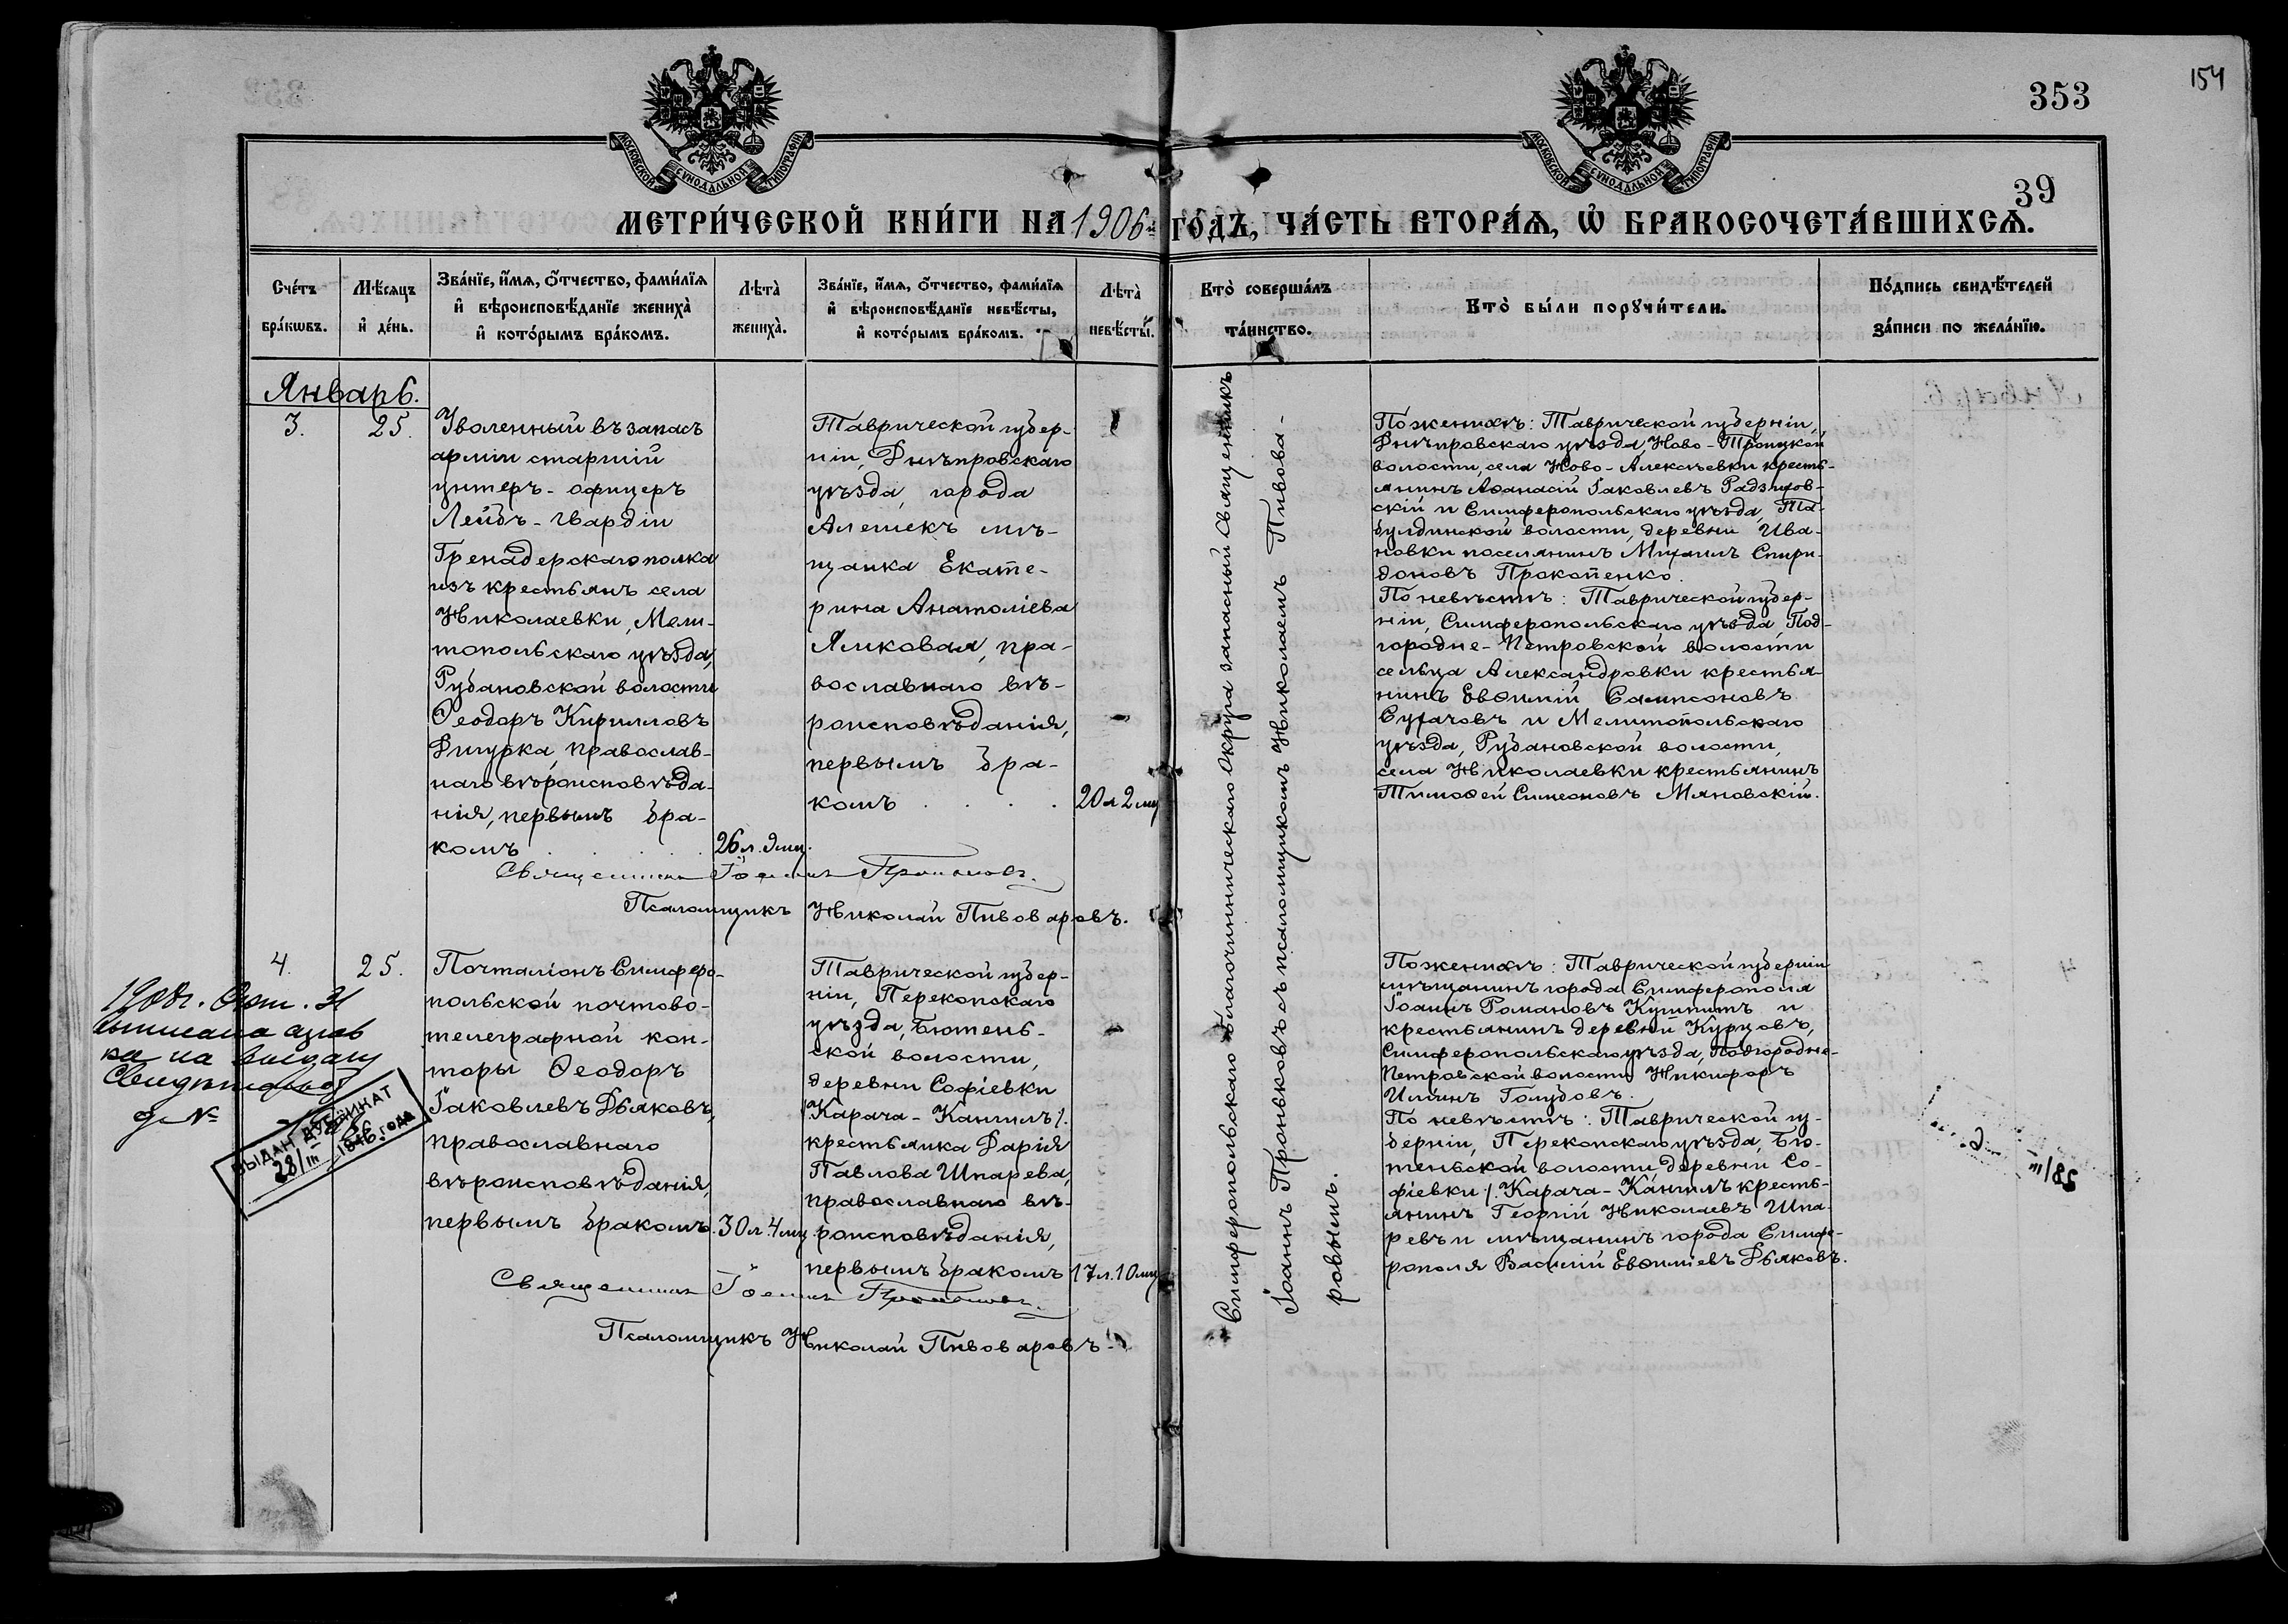 353
154
39
МОСКОВСКОЙ СѴНОДАЛЬНОЙ ТИПОГРАФІИ.
МОСКОВСКОЙ СѴНОДАЛЬНОЙ ТИПОГРАФІИ.
МЕТРИ́ЧЕСКОЙ КНИ́ГИ НА 1906й ГО́ДЪ, ЧА́СТЬ ВТОРА́Ѧ, Ѡ҆ БРАКОСОЧЕТА́ВШИХСѦ.
Сче́тъ
бра́кѡвъ.
Мѣ́сяцъ
и҆ де́нь.
Зва́нїе, и҆́мѧ, ѻ҆́тчество, фами́лїѧ
и҆ вѣроисповѣ́данїе жениха̀
и҆ кото́рымъ бра́комъ.
Лѣта̀
жениха̀.
Зва́нїе, и҆́мѧ, ѻ҆́тчество, фами́лїѧ
и҆ вѣроисповѣ́данїе невѣ́сты,
и҆ кото́рымъ бра́комъ.
Лѣта̀
невѣ́сты.
Кто̀ соверша́лъ
та́инство.
Кто̀ бы́ли порꙋчи́тели.
По́дпись свидѣ́телей
за́писи по жела́нїю.
Январь.
3.
25.
Уволенный въ запасъ
арміи старшій
унтеръ-офицеръ
Лейбъ-Гвардіи
Гренадерскаго полка
изъ крестьянъ села
Николаевки, Мели-
топольскаго уѣзда,
Рубановской волости
Ѳеодоръ Кирилловъ
Дигурка, православ-
наго вѣроисповѣда-
нія, первымъ бра-
комъ . . . .
26 л. 9 мц.
Таврической губер-
ніи, Днѣпровскаго
уѣзда, города
Алешекъ мѣ-
щанка Екате-
рина Анатоліева
Яликовая, пра-
вославнаго вѣ-
роисповѣданія,
первымъ бра-
комъ . . . .
20 л 2 мц
Священникъ Іоаннъ
Псаломщикъ Николай Пивоваровъ.
Симферопольскаго благочинническаго Округа запасный Священникъ
Іоаннъ Проньковъ съ псаломщикомъ Николаемъ Пивова-
ровымъ.
По женихѣ: Таврической губерніи,
Днѣпровскаго уѣзда, Ново-Троицкой
волости, села Ново-Алексѣевки кресть-
янинъ Аѳанасій Іаковлевъ Радзіцов-
скій и Симферопольскаго уѣзда, Та-
булдинской волости, деревни Ива-
новки поселянинъ Михаилъ Спири-
доновъ Прокопенко.
По невѣстѣ: Таврической губер-
ніи, Симферопольскаго уѣзда, Под-
городне-Петровской волости
сельца Александровки крестья-
нинъ Евѳимій Сампсоновъ
Сугачовъ и Мелитопольскаго
уѣзда, Рубановской волости,
села Николаевки крестьянинъ
Тимоѳей Симеоновъ Мяновскій.
4.
25.
Почталіонъ Симферо-
польской почтово-
телеграфной кон-
торы Ѳеодоръ
Іаковлевъ Дьяковъ,
православнаго
вѣроисповѣданія,
первымъ бракомъ.
30 л. 4 мц.
Таврической губер-
ніи, Перекопскаго
уѣзда, Бютень-
ской волости,
деревни Софіевки
/Карача-Кангилъ/.
крестьянка Дарія
Павлова Шпарева,
православнаго вѣ-
роисповѣданія,
первымъ бракомъ
17 л. 10 мц
Священникъ Іоаннъ
Псаломщикъ Николай Пивоваровъ.
По женихѣ: Таврической губерніи
мѣщанинъ города Симферополя
Іоаннъ Романовъ Кушнитъ и
крестьянинъ деревни Курцовъ,
Симферопольскаго уѣзда, Подгородне-
Петровской волости Никифоръ
Ильинъ Голубовъ.
По невѣстѣ: Таврической гу-
берніи, Перекопскаго уѣзда, Бю-
теньской волости, деревни Со-
фіевки /. Карача-Кангилъ кресть-
янинъ Георгій Николаевъ Шпа-
ревъ и мѣщанинъ города Симфе-
рополя Василій Евѳиміевъ Дьяковъ.
1908г. Окт. 31
выписана справ
ка на выдачу
д. №
ВЫДАН ДУБЛИКАТ
28/III 1946 ГОДА